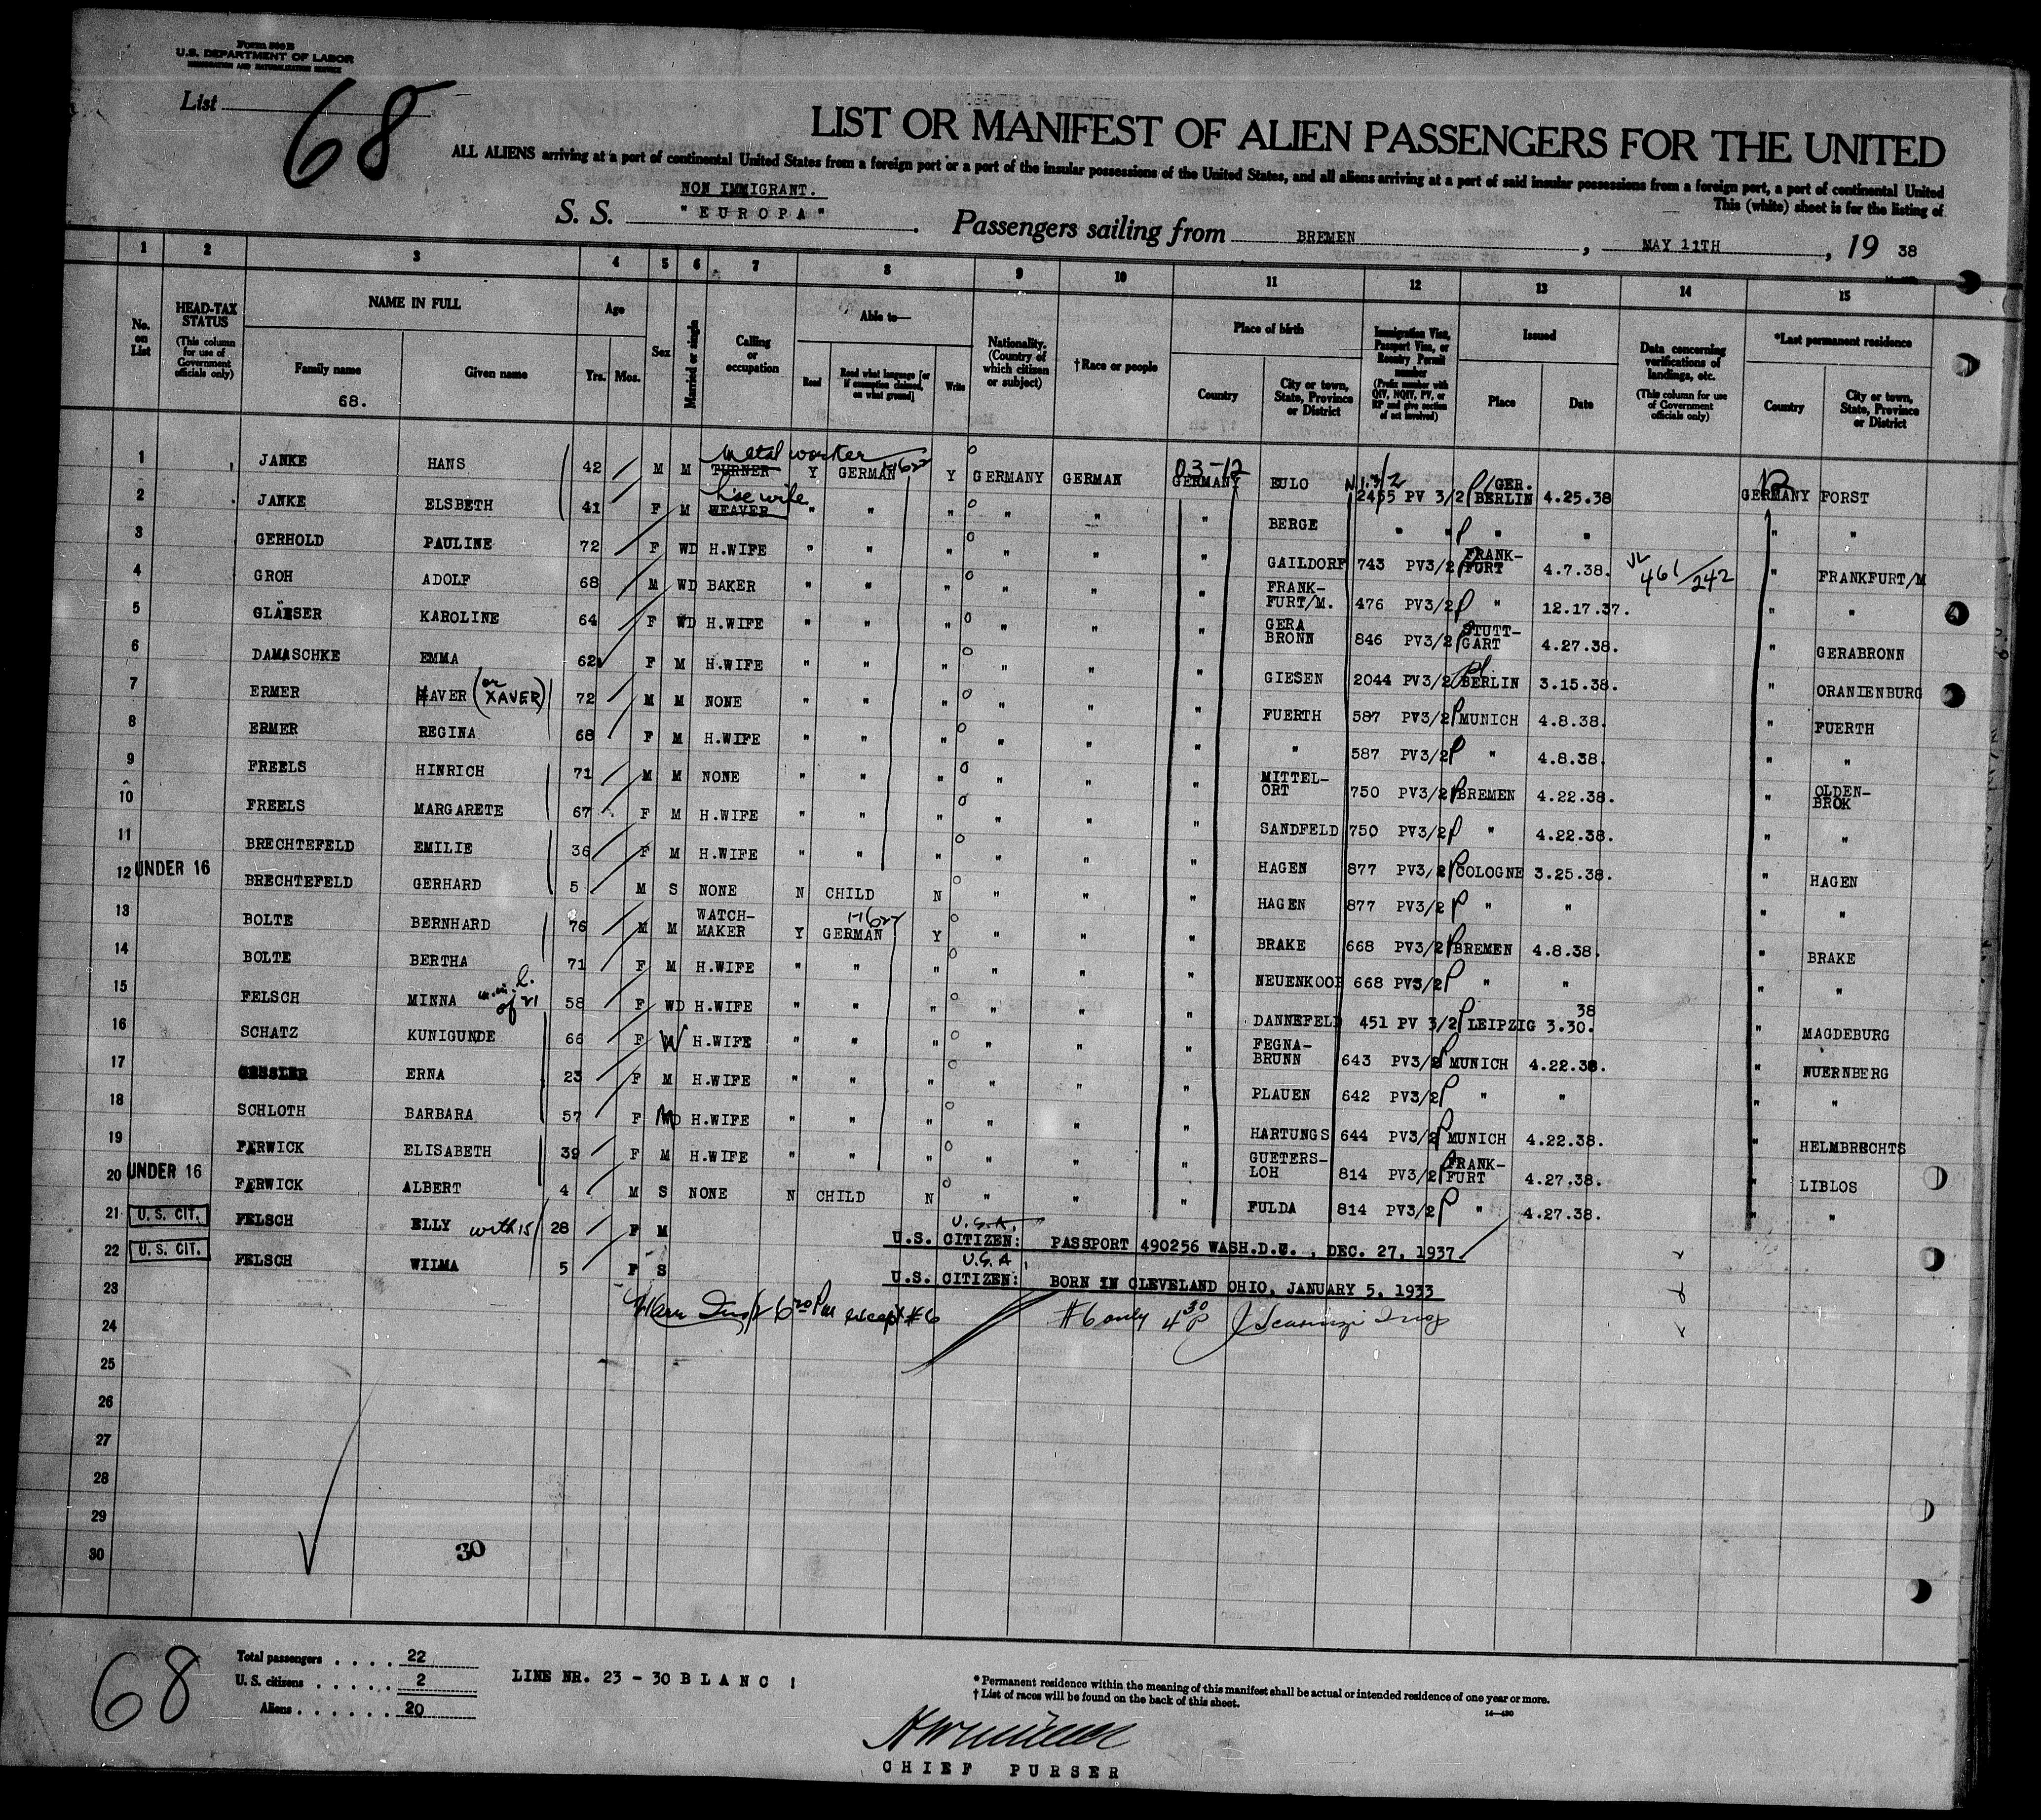 Form 500 B
U.S. DEPARTMENT OF LABOR
IMMIGRATION AND NATURALIZATION SERVICE
List 68
LIST OR MANIFEST OF ALIEN PASSENGERS FOR THE UNITED
ALL ALIENS arriving at a port of continental United States from a foreign port or a port of the insular possessions of the United States, and all aliens arriving at a port of said insular possessions from a foreign port, a port of continental United
This (white) sheet is for the listing of
NON IMMIGRANT.
S. S. "EUROPA". Passengers sailing from BREMEN, MAY 11TH, 19 38
1 2 3 4 5 6 7 8 9 10 11 12 13 14 15
No. on List
HEAD-TAX STATUS (This column for use of Government officials only)
NAME IN FULL
Family name Given name
68.
Age
Yrs. Mos.
Sex
Married or single
Calling or occupation
Able to—
Read Read what language [or if exemption claimed, on what ground] Write
Nationality. (Country of which citizen or subject)
†Race or people
Place of birth
Country City or town, State, Province or District
Immigration Visa, Passport Visa, or Reentry Permit number (Prefix number with QIV, NQIV, PV, or RP and give section of act involved)
Issued
Place Date
Data concerning verifications of landings, etc. (This column for use of Government officials only)
*Last permanent residence
Country City or town, State, Province or District
metal worker 03-12
1 JANKE HANS 42 M M TURNER Y GERMAN Y GERMANY GERMAN GERMANY EULO 2455 PV 3/2 P/GER. BERLIN 4.25.38 GERMANY FORST
h'se wife
2 JANKE ELSBETH 41 F M WEAVER " " " " " " BERGE " " P " " " "
3 GERHOLD PAULINE 72 F WD H.WIFE " " " " " " GAILDORF 743 PV3/2 P FRANK-FURT 4.7.38. 461/242 " FRANKFURT/M
4 GROH ADOLF 68 M WD BAKER " " " " " " FRANK-FURT/M. 476 PV3/2 P " 12.17.37. " "
5 GLÄESER KAROLINE 64 F WD H.WIFE " " " " " " GERA BRONN 846 PV3/2 STUTT-GART 4.27.38. " GERABRONN
6 DAMASCHKE EMMA 62 F M H.WIFE " " " " " " GIESEN 2044 PV3/2 BERLIN 3.15.38. " ORANIENBURG
7 ERMER HAVER (or XAVER) 72 M M NONE " " " " " " FUERTH 587 PV3/2 P MUNICH 4.8.38. " FUERTH
8 ERMER REGINA 68 F M H.WIFE " " " " " " " 587 PV3/2 P " 4.8.38. " "
9 FREELS HINRICH 71 M M NONE " " " " " " MITTEL-ORT 750 PV3/2 P BREMEN 4.22.38. " OLDEN-BROK
10 FREELS MARGARETE 67 F M H.WIFE " " " " " " SANDFELD 750 PV3/2 P " 4.22.38. " "
11 BRECHTEFELD EMILIE 36 F M H.WIFE " " " " " " HAGEN 877 PV3/2 P COLOGNE 3.25.38. " HAGEN
12 UNDER 16 BRECHTEFELD GERHARD 5 M S NONE N CHILD N " " " HAGEN 877 PV3/2 P " " " "
13 BOLTE BERNHARD 76 M M WATCH-MAKER Y GERMAN Y " " " BRAKE 668 PV3/2 P BREMEN 4.8.38. " BRAKE
14 BOLTE BERTHA 71 F M H.WIFE " " " " " " NEUENKOOP 668 PV3/2 P " " " "
15 FELSCH MINNA of 21 58 F WD H.WIFE " " " " " " DANNEFELD 451 PV 3/2 P LEIPZIG 3.30.38 " MAGDEBURG
16 SCHATZ KUNIGUNDE 66 F W H.WIFE " " " " " " FEGNA-BRUNN 643 PV3/2 P MUNICH 4.22.38. " NUERNBERG
17 ERNA 23 F M H.WIFE " " " " " " PLAUEN 642 PV3/2 P " " " "
18 SCHLOTH BARBARA 57 F WD H.WIFE " " " " " " HARTUNGS 644 PV3/2 P MUNICH 4.22.38. " HELMBRECHTS
19 FERWICK ELISABETH 39 F M H.WIFE " " " " " " GUETERS-LOH 814 PV3/2 P FRANK-FURT 4.27.38. " LIBLOS
20 UNDER 16 FERWICK ALBERT 4 M S NONE N CHILD N " " " FULDA 814 PV3/2 P " 4.27.38. " "
U.S.A.
21 U. S. CIT. FELSCH ELLY with 15 28 F M U.S. CITIZEN: PASSPORT 490256 WASH.D.C., DEC. 27, 1937
U.S.A.
22 U. S. CIT. FELSCH WILMA 5 F S U.S. CITIZEN: BORN IN CLEVELAND OHIO, JANUARY 5, 1933
23 6 30 Pm except #6 #6 only 4 30 P
24
25
26
27
28
29
30
30
68
Total passengers . . . . 22
U. S. citizens . . . . . 2
Aliens . . . . . . 20
LINE NR. 23 - 30 B L A N C !
* Permanent residence within the meaning of this manifest shall be actual or intended residence of one year or more.
† List of races will be found on the back of this sheet.
14—430
CHIEF PURSER